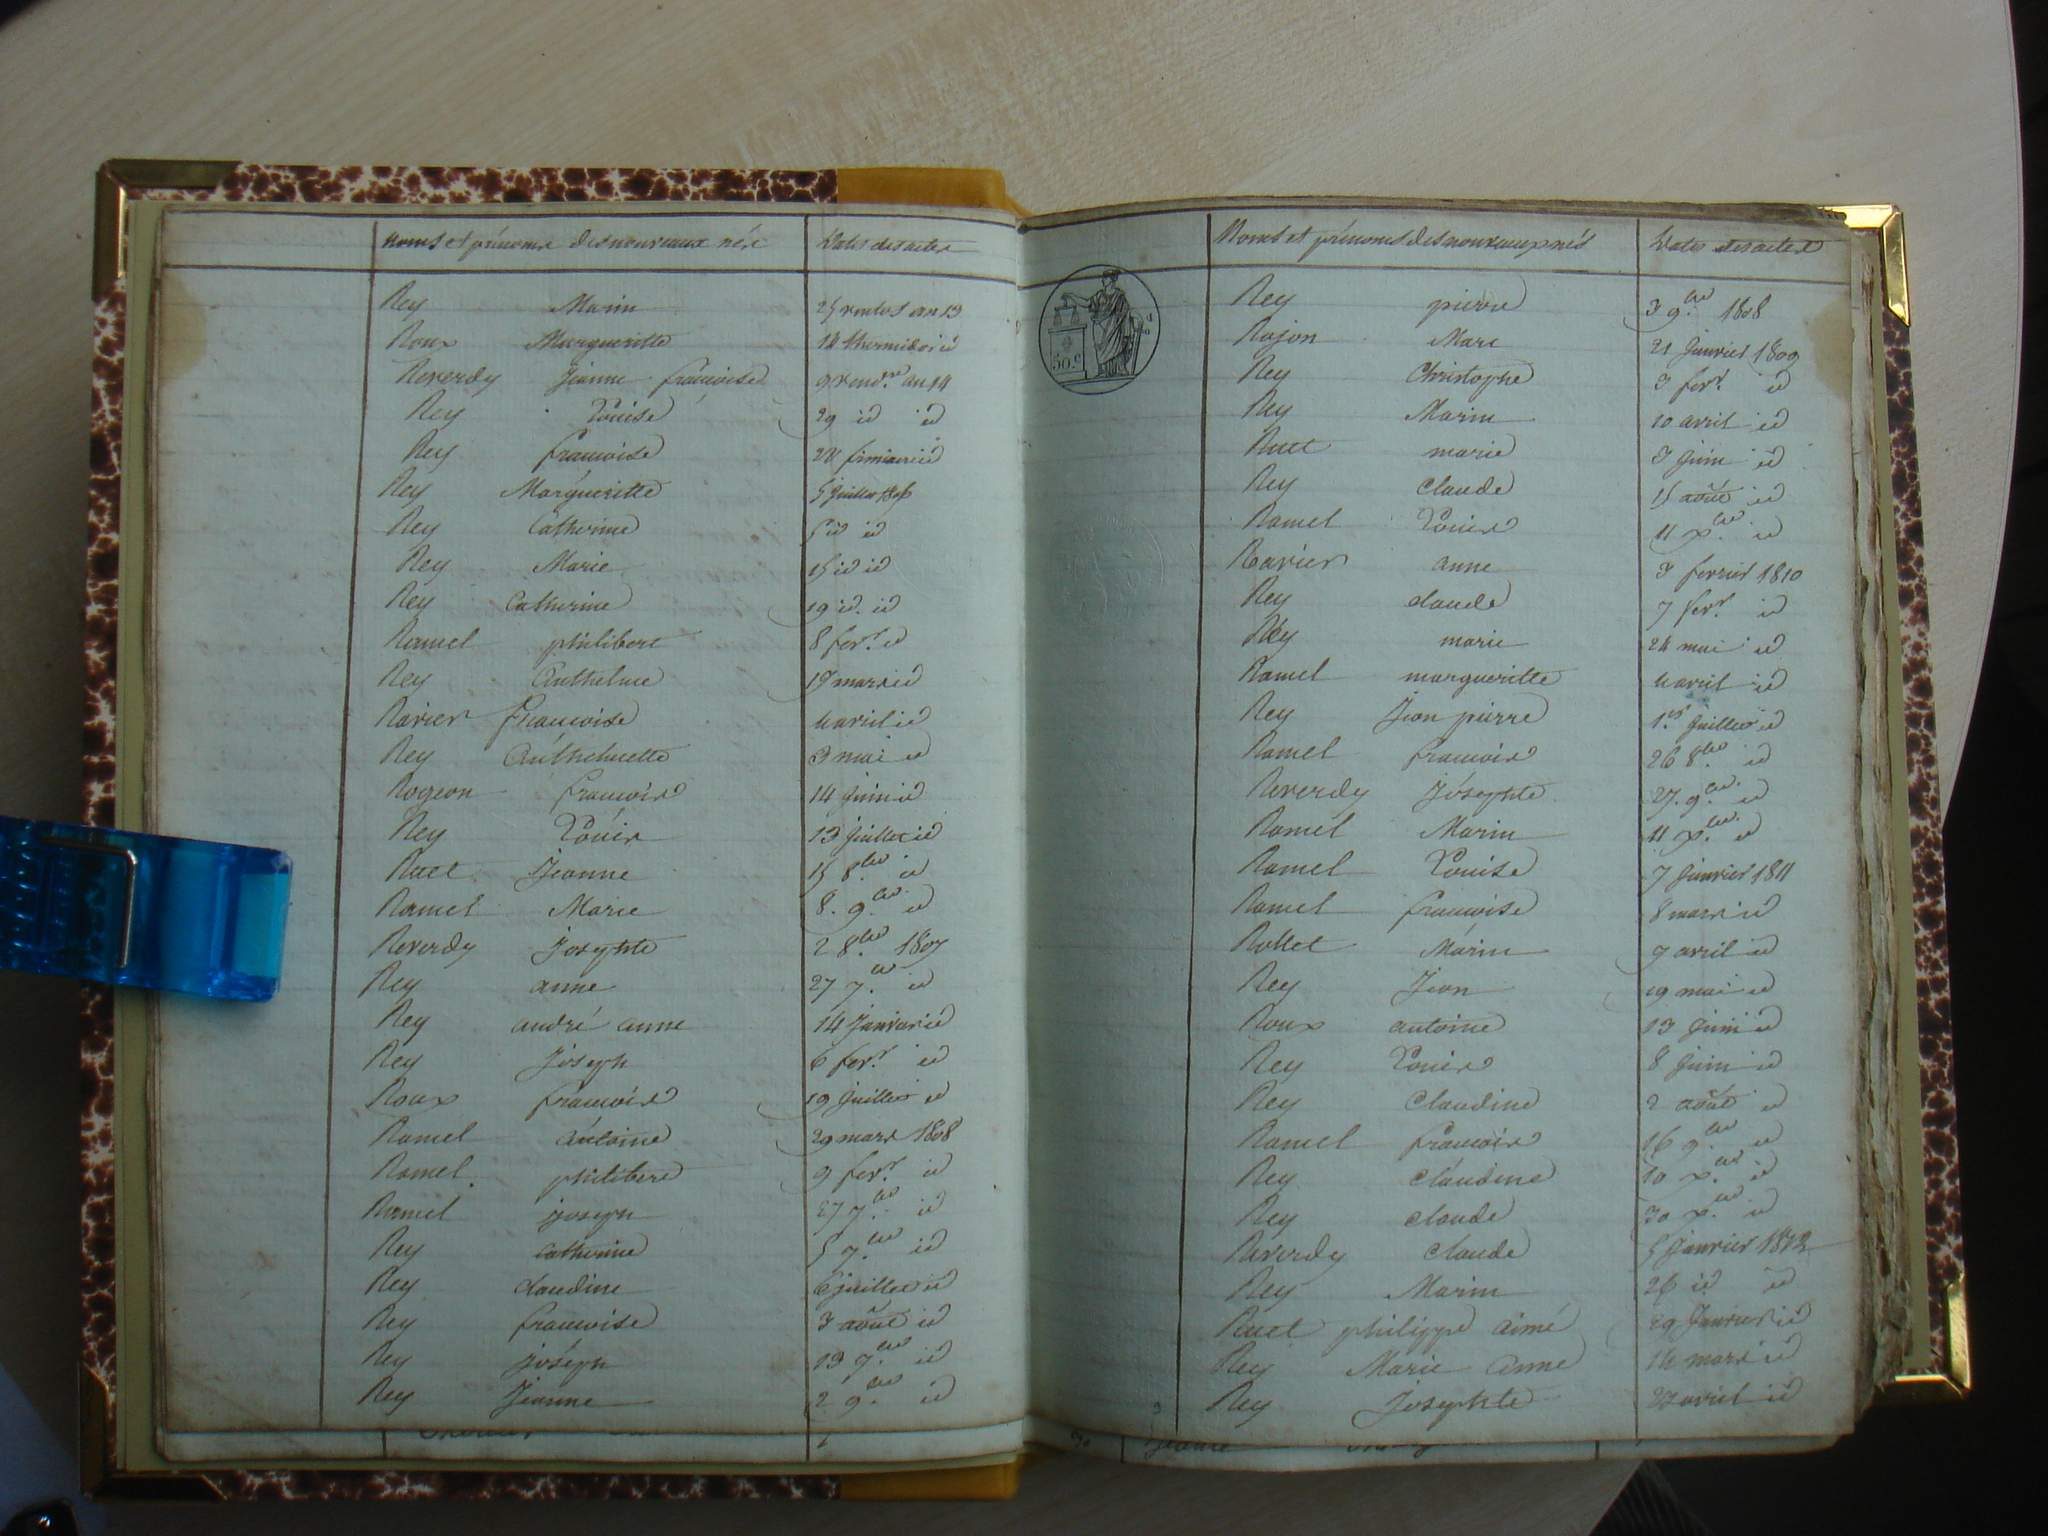 Noms et prénoms des nouveaux nés Dates des actes
Rey Marin 25 ventos an 13
Roux Margueritte 14 thermidor id
Reverdy Jeanne françoise 9 vend.re an 14
Rey Louise 29 id id
Rey françoise 28 frimaire id
Rey Margueritte 5 juillet
Rey Catherine 5 id id
Rey Marie 15 id id
Rey Catherine 19 id id
Ramel philibert 8 fevr. id
Rey Anthelme 19 mars id
Ravier françoise 4 avril id
Rey Anthelmette 3 mai id
Rogeon françois 14 juin id
Rey Louis 13 juillet id
Ruet Jeanne 15 8.bre id
Ramel Marie 8. 9.bre id
Reverdy Josephte 2 8.bre 1807
Rey anne 27 7.bre id
Rey andré anne 14 Janvier id
Rey Joseph 6 fevr. id
Roux françois 19 juillet id
Ramel antoine 29 mars 1808
Ramel philibert 9 fevr. id
Ramel joseph 27 7.bre id
Rey Catherine 5 7.bre id
Rey claudine 6 juillet id
Rey françoise 3 août id
Rey joséph 13 7.bre id
Rey Jeanne 2 9.bre id
Noms et prénoms des nouveaux nés Dates des actes
50.c
Rey pierre 3 9.bre 1808
Rojon Marc 21 Janvier 1809
Rey Christophe 3 fevr. id
Rey Marin 10 avril id
Ruet marie 3 juin id
Rey claude 15 août id
Ramel Louis 11 x.bre id
Ravier anne 3 fevrier 1810
Rey claude 7 fevr. id
Rey marie 24 mai id
Ramel margueritte 4 avril id
Rey Jean pierre 1.er juillet id
Ramel françois 26 8.bre id
Reverdy Joséphte 27. 9.bre id
Ramel Marin 11 x.bre id
Ramel Louise 7 Janvier 1811
Ramel françoise 8 mars id
Rollet Marin 9 avril id
Rey Jean 19 mai id
Roux antoine 13 juin id
Rey Louis 8 juin id
Rey Claudine 2 août id
Ramel françois 16 9.bre id
Rey claudine 10 x.bre id
Rey claude 30 x.bre id
Reverdy claude 5 Janvier 1812
Rey Marin 26 id id
Ruet philippe aimé 29 Janvier id
Rey Marie Anne 14 mars id
Rey Josephte avril id